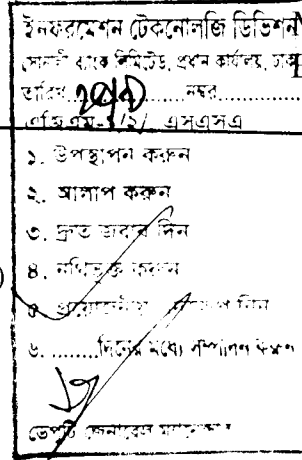 ইনফরমেশন টেকনোলজি ডিভিশন
সোনালী ব্যাংক লিমিটেড, প্রধান কার্যালয়, ঢাকা
তারিখ.............নম্বর.............
এজিএম-১/২/ এসএসএ
১. উপস্থাপন করুন
২. আলাপ করুন
৩. দ্রুত জবাব দিন
৪. নথিভুক্ত করুন
৫. প্রয়োজনীয় দিন
৬. ........দিনের মধ্যে সম্পাদন করুন
ডেপুটি জেনারেল